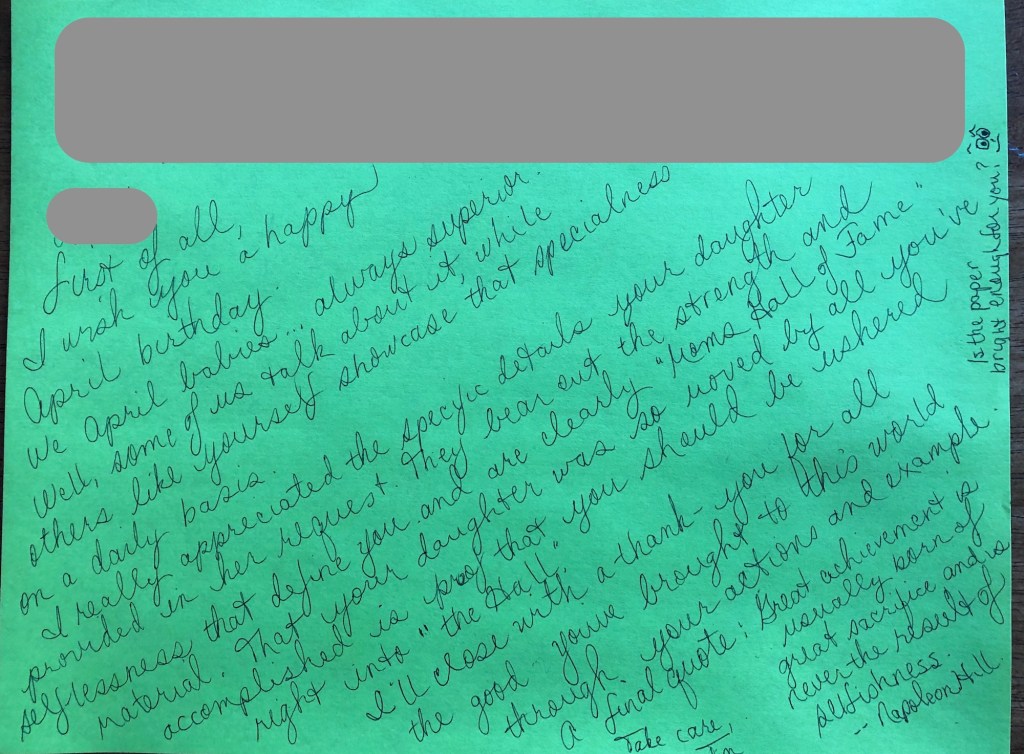 First of all,
I wish you a happy
April birthday.
We April babies... always superior.
Well, some of us talk about it, while
others like yourself showcase that specialness
on a daily basis.
I really appreciated the specific details your daughter
provided in her request. They bear out the strength and
selflessness that define you and are clearly "Moms Hall of Fame"
material. That your daughter was so moved by all you've
accomplished is proof that you should be ushered
right into "the Hall".
I'll close with a thank-you for all
the good you've brought to this world
through your actions and example.
A final quote: Great achievement is
usually born of
great sacrifice and is
never the result of
selfishness.
-- Napoleon Hill
Take care,
Is the paper
bright enough for you?